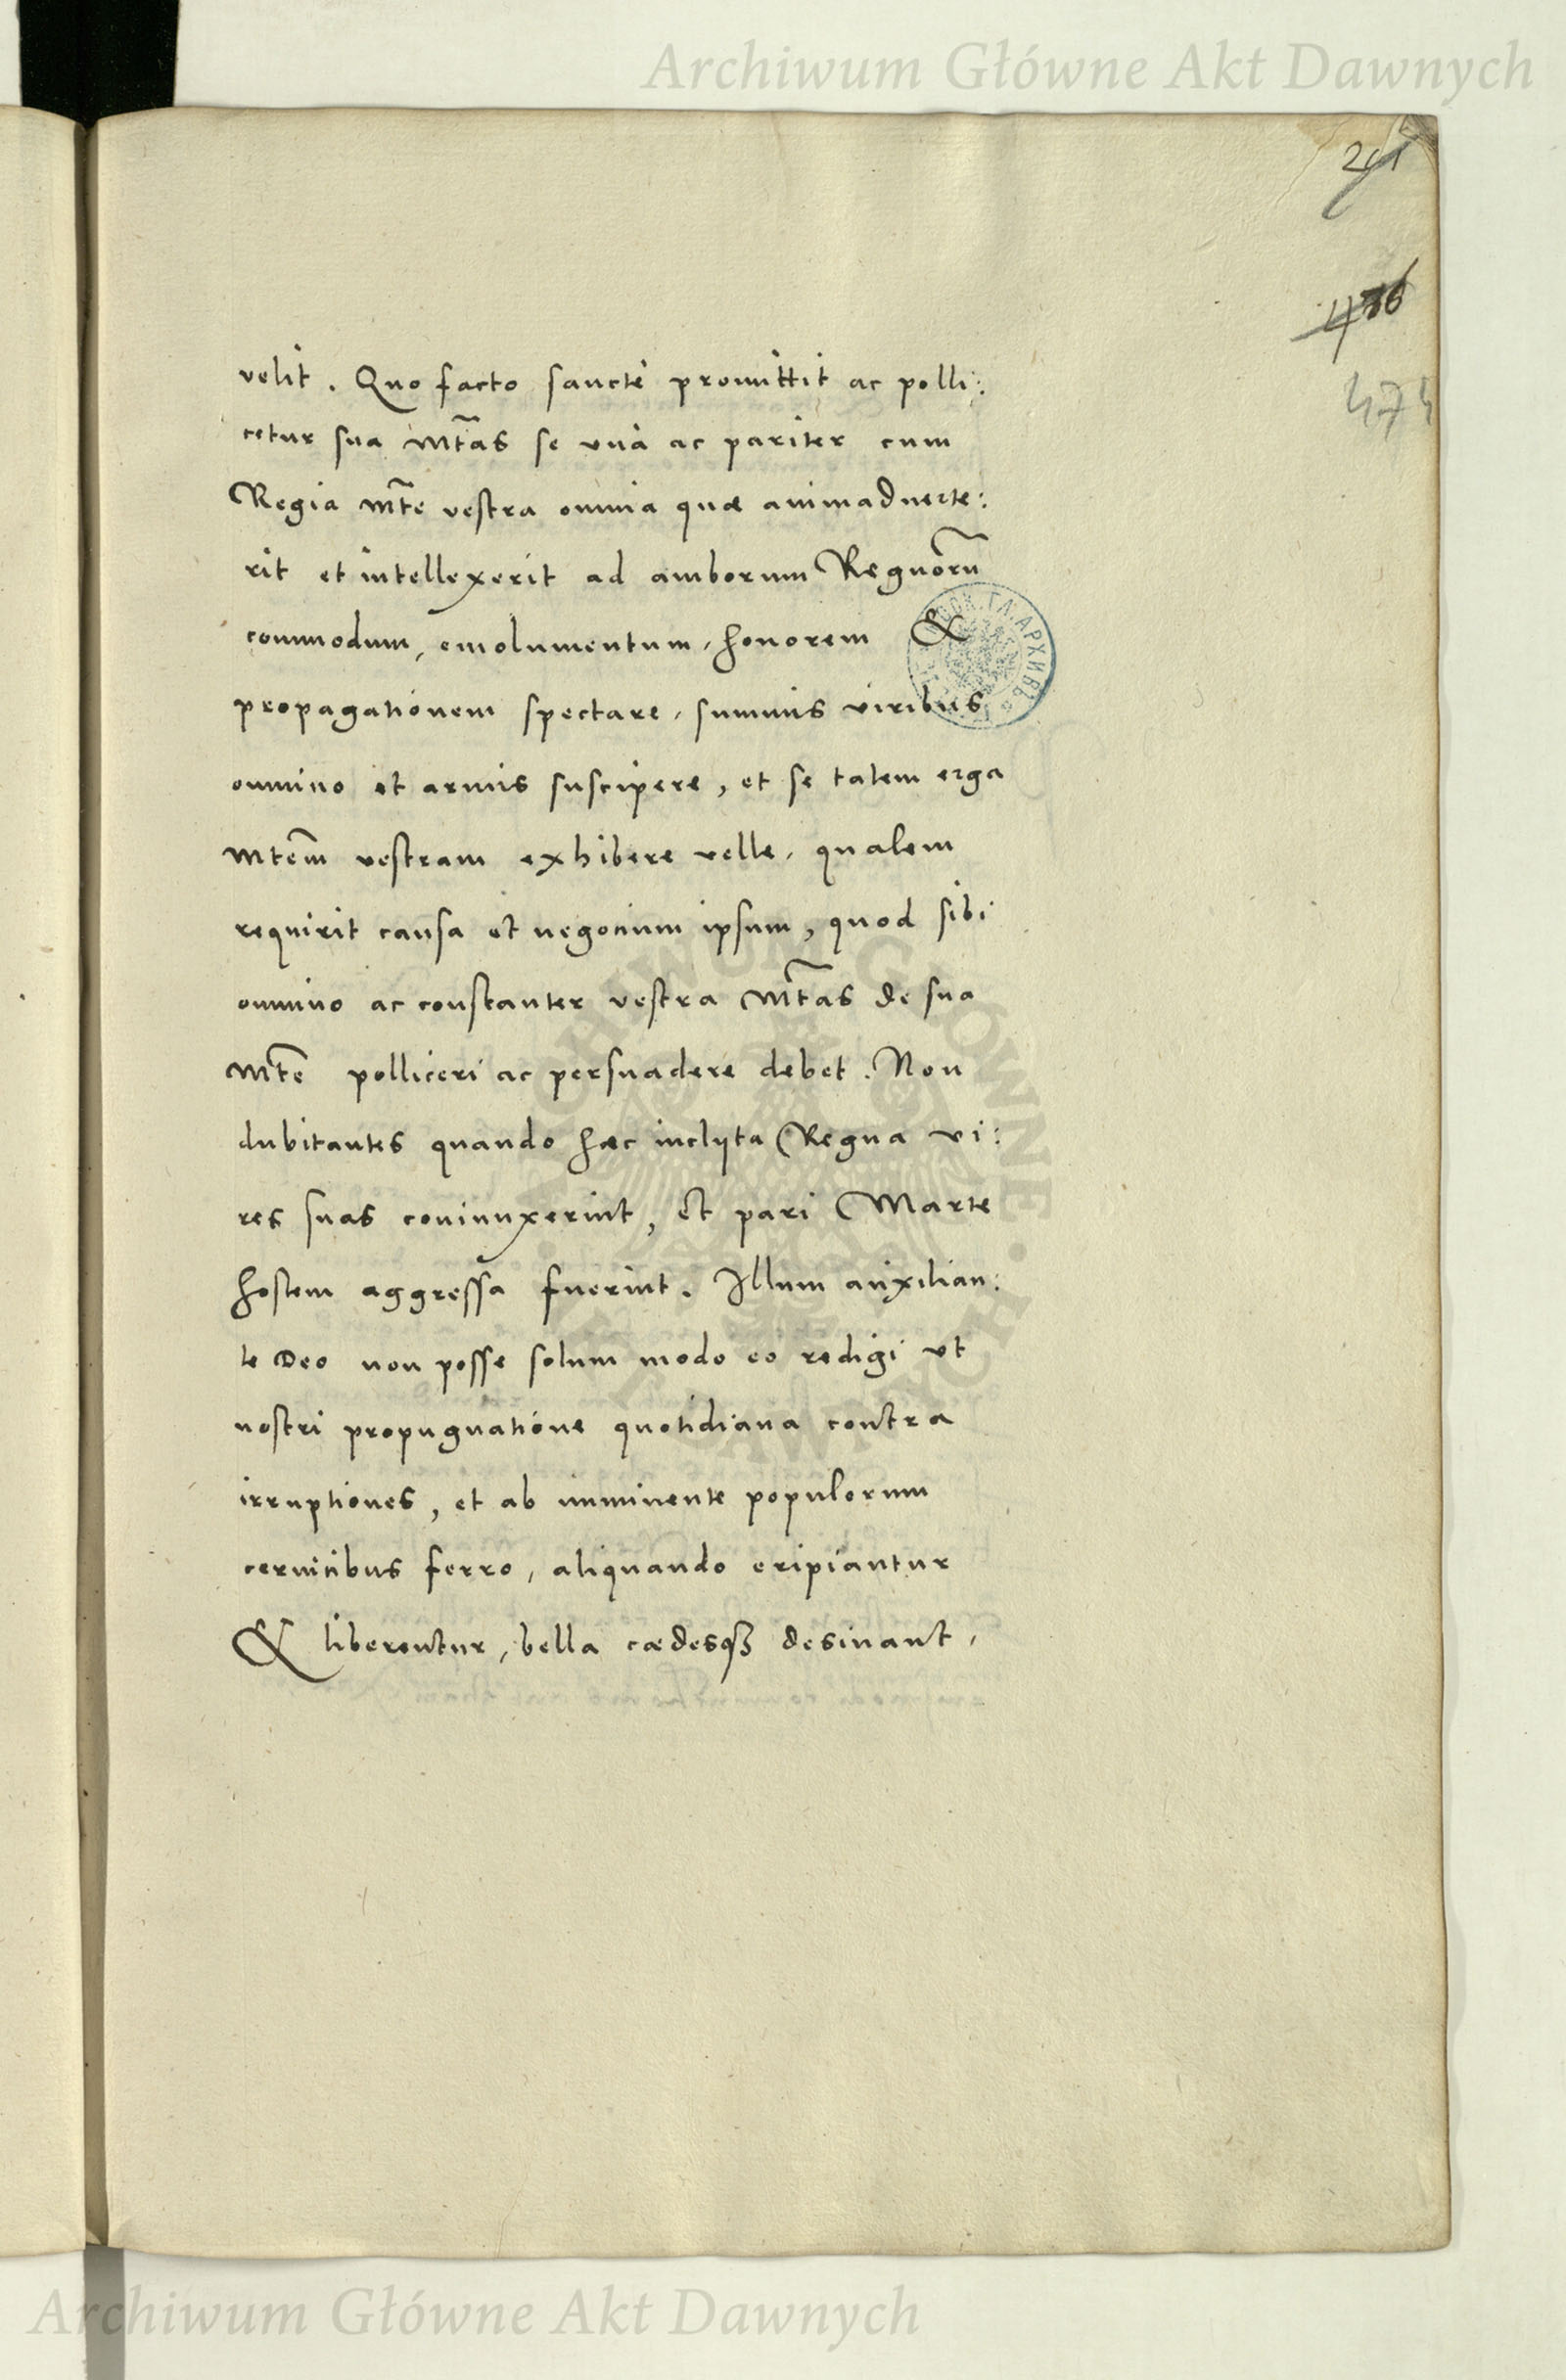 Archiwum Główne Akt Dawnych
velit. Quo facto sancte promittit ac polli:
cetur sua Mtas se unà ac pariter cum
Regia Mte vestra omnia quæ animaduerte:
rit et intellexerit ad amborum Regnorũ
commodum, emolumentum, honorem &
propagationem spectare, summis viribus
omnino et armis suscipere, et se talem erga
Mtem vestram exhibere velle, qualem
requirit causa et negocium ipsum, quod sibi
omnino ac constanter vestra Mtas de sua
Mte polliceri ac persuadere debet. Non
dubitantes quando hæc inclyta Regna vi:
res suas coniunxerint, et pari Marte
hostem aggressa fuerint. Illum auxilian:
te Deo non posse solum modo eo redigi vt
nostri propugnatione quotidiana contra
irruptiones, et ab imminente populorum
ceruicibus ferro, aliquando eripiantur
& liberentur, bella cædesq3 desinant,
Archiwum Główne Akt Dawnych